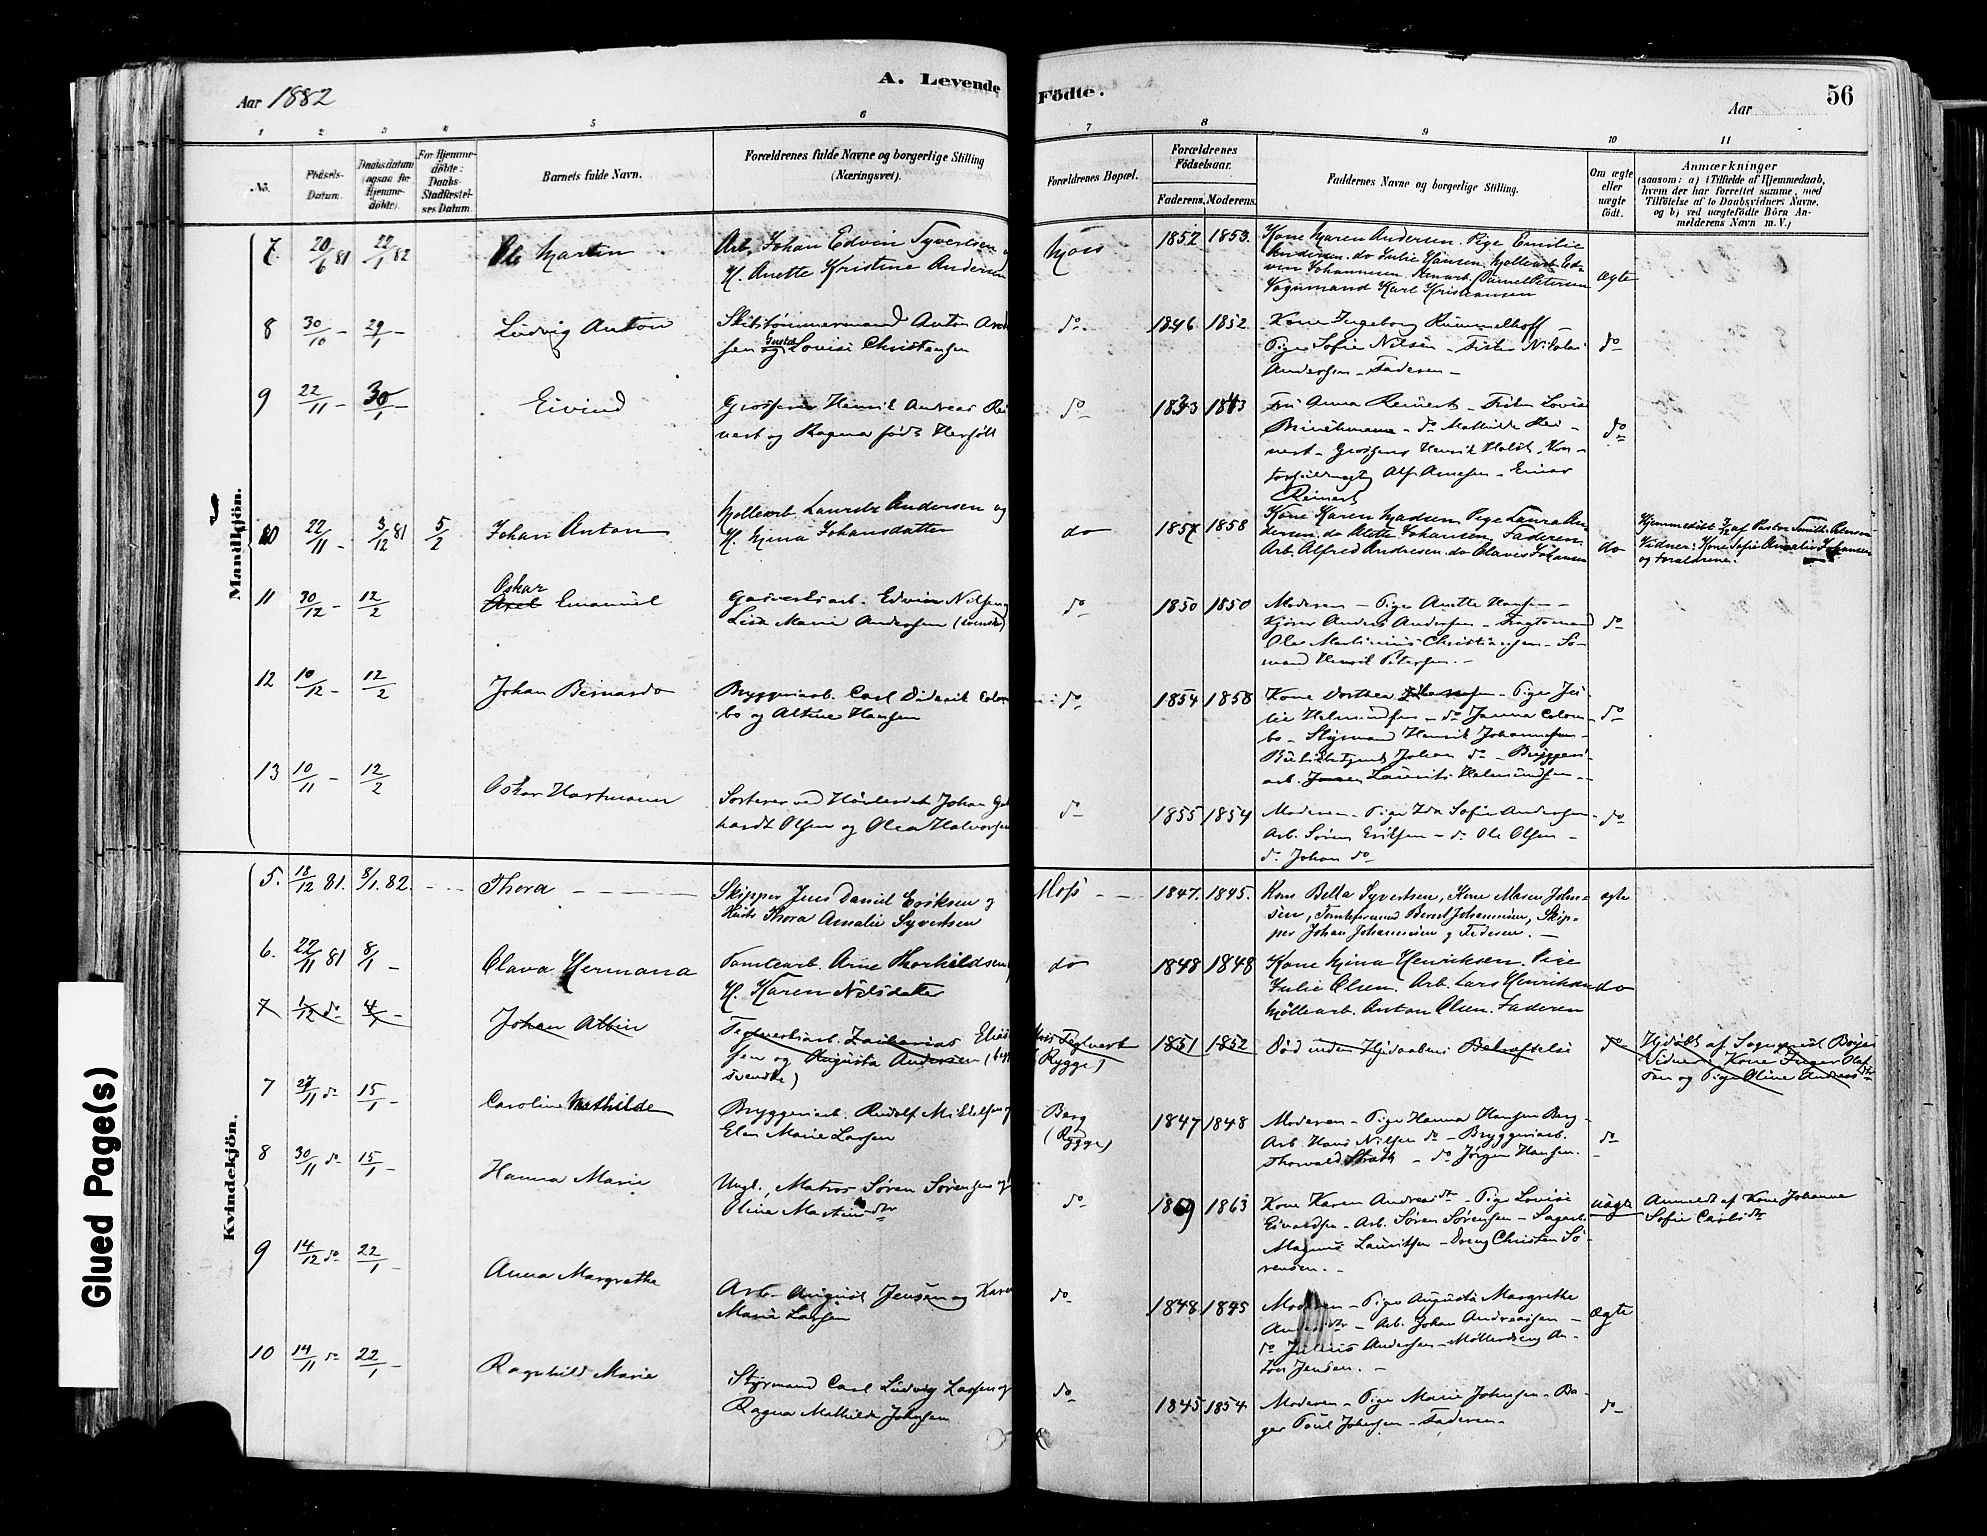 Aar 1882
A. Levende Födte.
Aar
56
1 2 3 4 5 6 7 8 9 10 11
No.
Födsels-
Datum.
Daabsdatum
(ogsaa for
Hjemme-
döbte).
For Hjemme-
döbte:
Daabs-
Stadfæstel-
ses Datum.
Barnets fulde Navn.
Forældrenes fulde Navne og borgerlige Stilling
(Næringsvei).
Forældrenes Bopæl.
Forældrenes
Födselsaar.
Faderens. Moderens.
Faddernes Navne og borgerlige Stilling.
Om ægte
eller
uægte
födt.
Anmærkninger
(saasom: a) i Tilfælde af Hjemmedaab,
hvem der har forrettet samme, med
Tilföielse af to Daabsvidners Navne.
og b) ved uægtefödte Börn An-
melderens Navn m. V.)
Mandkjön.
7. 20/6 81 22/1 82 Ole Martin
Arb. Johan Edvin Syvertsen
H. Anette Kristine Andersen
Moss
1852 1853.
Kone Maren Andersen. Pige Emilie
Andersen. do Julie Hansen. Möllearb. Ed-
vin Johannesen. Stenarb. Daniel Petersen
Vognmand Karl Kristiansen
ægte
8 30/10 – 29/1 – Ludvig Anton
Skibstömmermand Anton
sen og Lovise Christensen
do
1846 1852
Kone Ingeborg Rummelhoff –
Pige Sofie Nilsen – Nikolai
Andersen – Faderen –
do
9 22/11 – 30/1 – Eivind
Grosserer Henrik Andreas Rei-
nert og Ragna födt
do
1843
Fru Anna Reinert – Lovise
do Mathilde Rei-
nert – Henrik Holst, Kon-
torfuldmægtig Alf Arnesen – Einar
Reinert
do
10 22/11 – 3/12 81 5/2 Johan Anton
Möllearb. Lauritz Andersen og
H. Mina Johansdatter
do
1857 1858
Kone Karen Madsen. Pige Laura An-
dersen. do Johansen. Faderen.
Arb. Alfred Andresen. do Olavis Johansen
do
Hjemmedöbt af Pastor Smith Petersen
Vidner: Kone Sofie Amalie Johansen
og Forældrene.
11 30/12 – 12/2
Oskar
Axel Emanuel
Gasverksarb. Edvin Nilsen og
Lisa Marie Andersen (svenske)
do
1850 1850
Moderen – Pige Anette Hansen –
Anders Andersen –
Ole Martinius Christiansen – Sö-
mand Henrik Petersen. –
do
12 10/12 – 12/2 Johan Bernardo
Bryggeriarb. Carl Diderik Colom-
bo og Altine Hansen
do
1854 1858
Kone Dorthea – Pige Ju-
lie Helmundsen – do Janna Colom-
bo – Styrmand Henrik Johannesen –
Johan do – Bryggeri-
arb. Laurits Helmundsen –
do
13 10/11 – 12/2 Oskar Hartmann
Sorterer ved Hövleriet Johan
hardt Olsen og Olea Halvorsen
do
1855 1854
Moderen – Pige Ida Sofie Andersen –
Arb. Sören Eriksen – do Ole Olsen –
do Johan do
do
Kvindekjön.
5. 18/12 81. 8/1. 82. – – Thora – – – –
Skipper Jens Daniel Eriksen og
Hustr Thora Amalie Syvertsen
Moss – –
1847. 1845.
Kone Bella Syvertsen, Kone Maren Johan-
sen, Tömmermand Bernt Johannesen, Skip-
per Johan Johannesen og Faderen. –
ægte
6. 22/11 81 8/1 – Olava Hermana
Tomtearb. Arne Thorkildsen
H. Karen Nilsdatter
do
1848 1848
Kone Mina Henriksen. Pige
Julie Olsen. Arb. Lars Henriksen
Möllearb. Anton Olsen. Faderen
do
7 1/12 do 4/1 – Johan Albin
Teglverksarb. Zacharias Elias-
sen og Augusta Andersen (begge
svenske)
Moss Teglverk
(Rygge)
1851 1852
Död inden Hjdaabens Bekræftelse
do
Hjdöbt af Sogneprest
Vidner: Kone Inger
sen og Pige Oline Andreasdtr
7 27/11 do 15/1 – Caroline Mathilde
Bryggeriarb. Rudolf Mikkelsen og
Elen Marie Larsen
Berg
(Rygge)
1847 1848
Moderen – Pige Hanna Hansen Berg –
Arb. Hans Nilsen do – Bryggeriarb.
Thorvald Strath – do Jörgen Hansen.
do
8 30/11 do 15/1 – Hanna Marie
Ungk., Matros Sören Sörensen og
Oline Martinsdtr
do
1863
Kone Karen Andreasdtr – Pige Lovise
Edvardsen – Arb. Sören Sörensen – Sagarb.
Magnus Lauritsen – Dreng Christen Sö-
rensen. –
uægte
Anmeldt af Kone Johanne
Sofie Carlsdtr
9 14/12 do 22/1 – Anna Margrethe
Arb. August Jensen og Karen
Marie Larsen
do
1848 1845
Moderen – Pige Augusta Margrethe
Andersdtr – Arb. Johan Andreassen –
do Julius Andersen – Mölledreng An-
ton Jensen. –
Ægte
10 14/11 do 22/1 – Ragnhild Marie
Styrmand Carl Ludvig Larsen og
Ragna Mathilde Johnsen
do
1845 1854
Moderen – Pige Marie Johnsen – Ba-
ger Paul Johnsen – Faderen –
do
Glued Page(s)